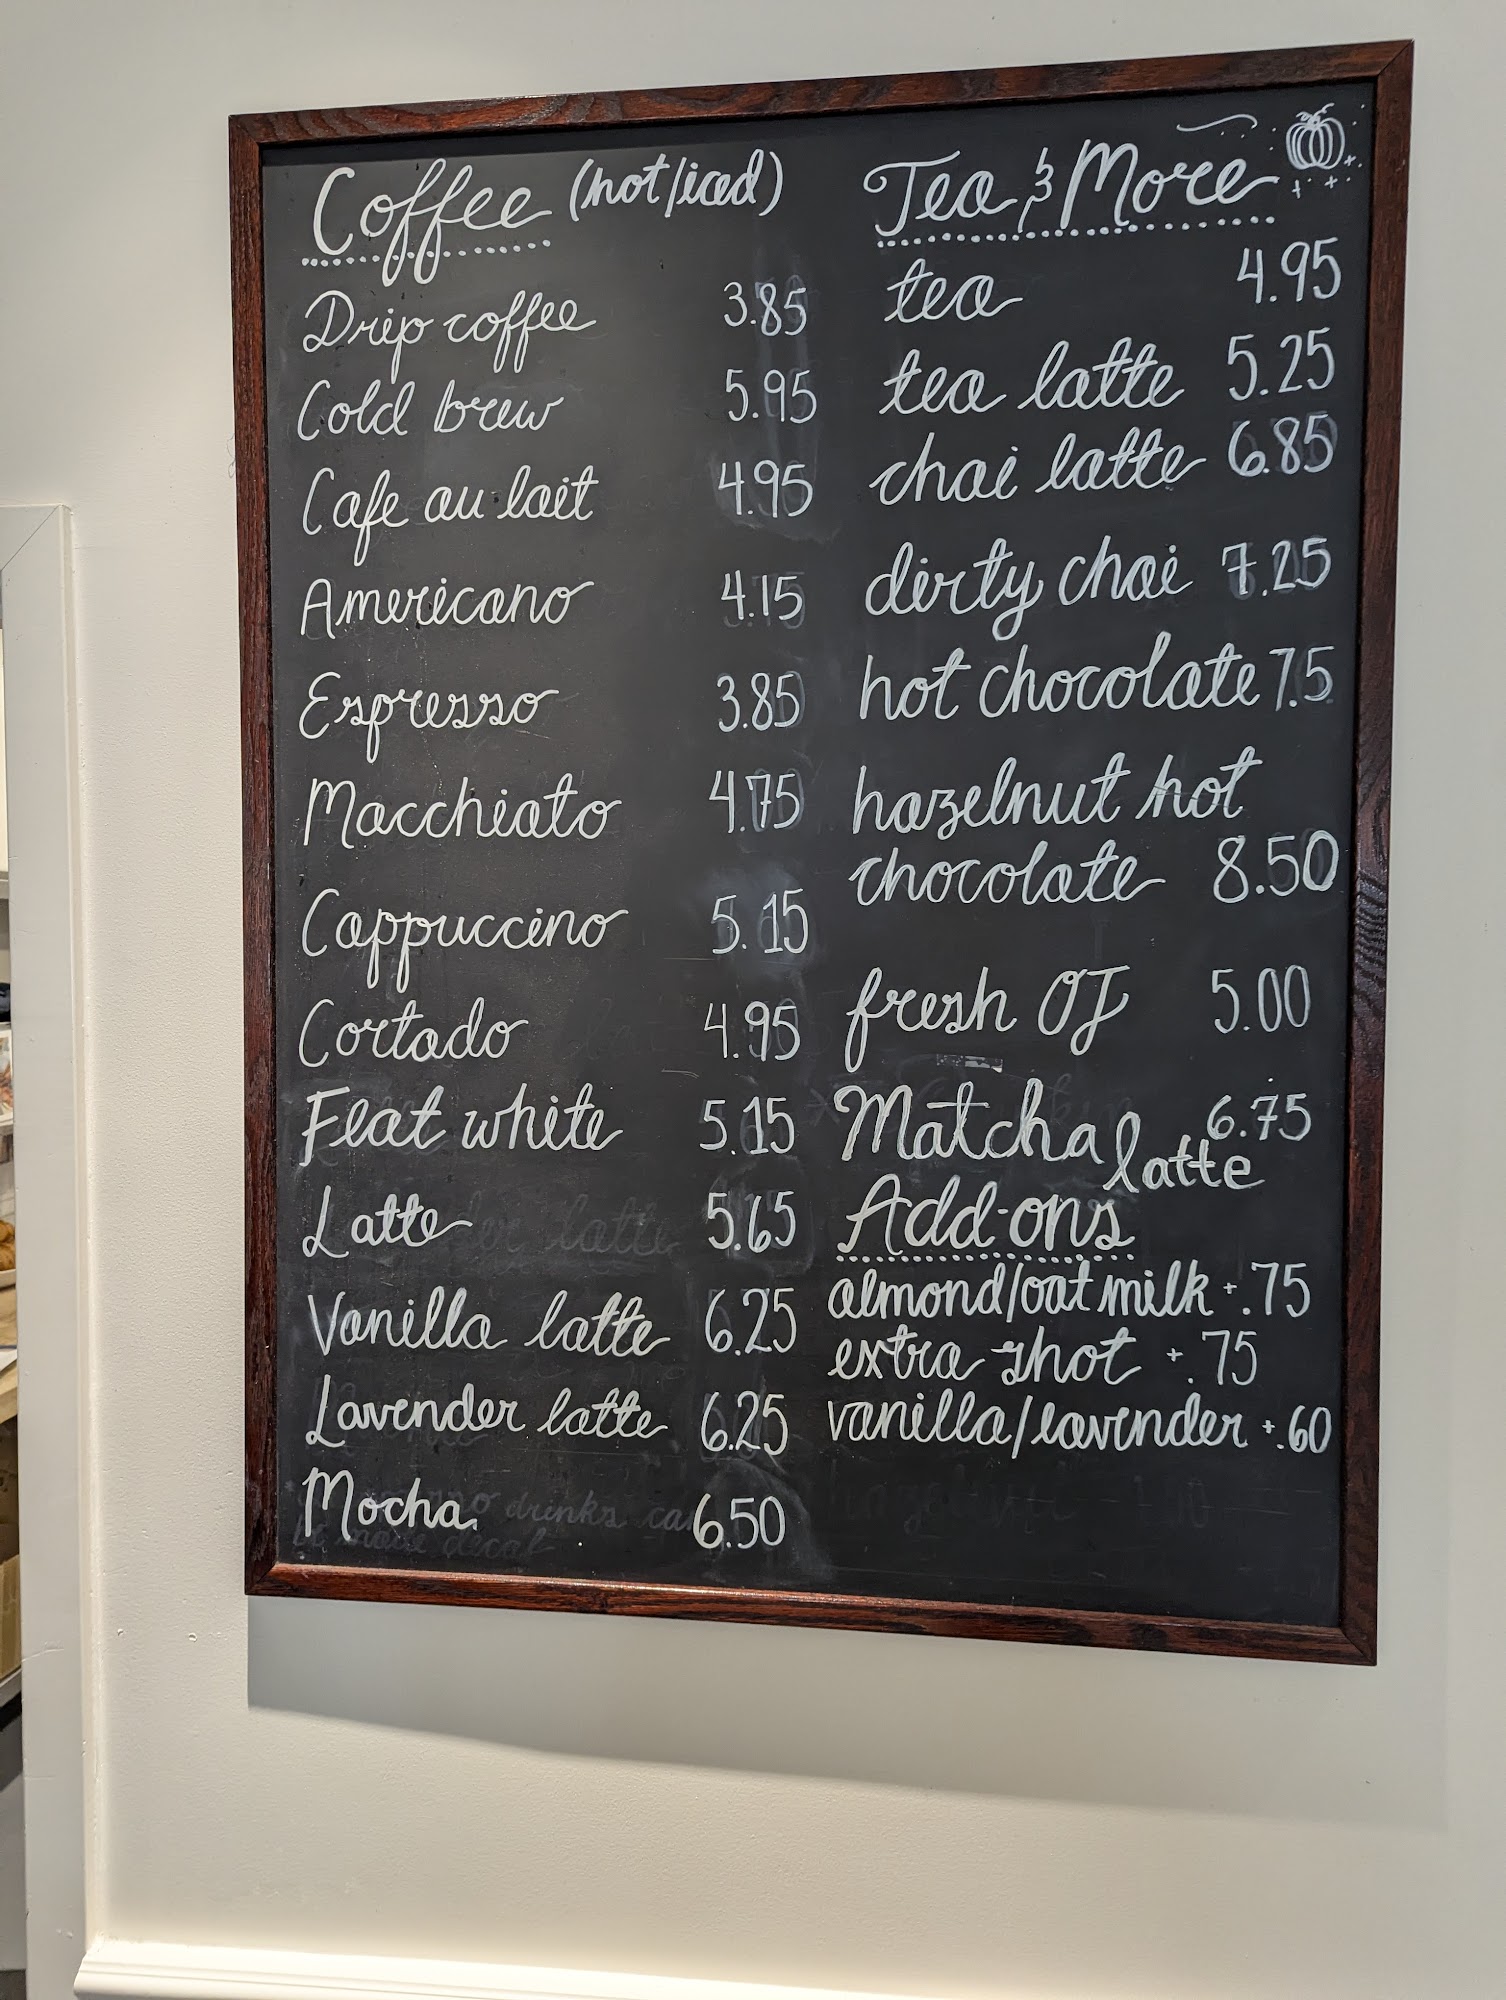 Coffee (hot/iced)
Drip coffee 3.85
Cold brew 5.95
Cafe au lait 4.95
Americano 4.15
Espresso 3.85
Macchiato 4.75
Cappuccino 5.15
Cortado 4.95
Flat white 5.15
Latte 5.65
Vanilla latte 6.25
Lavender latte 6.25
Mocha 6.50
drinks
decaf
Tea & More
tea 4.95
tea latte 5.25
chai latte 6.85
dirty chai 7.25
hot chocolate 7.5
hazelnut hot
chocolate 8.50
fresh OJ 5.00
Matcha 6.75
latte
Add-ons
almond/oat milk +.75
extra shot +.75
vanilla/lavender +.60